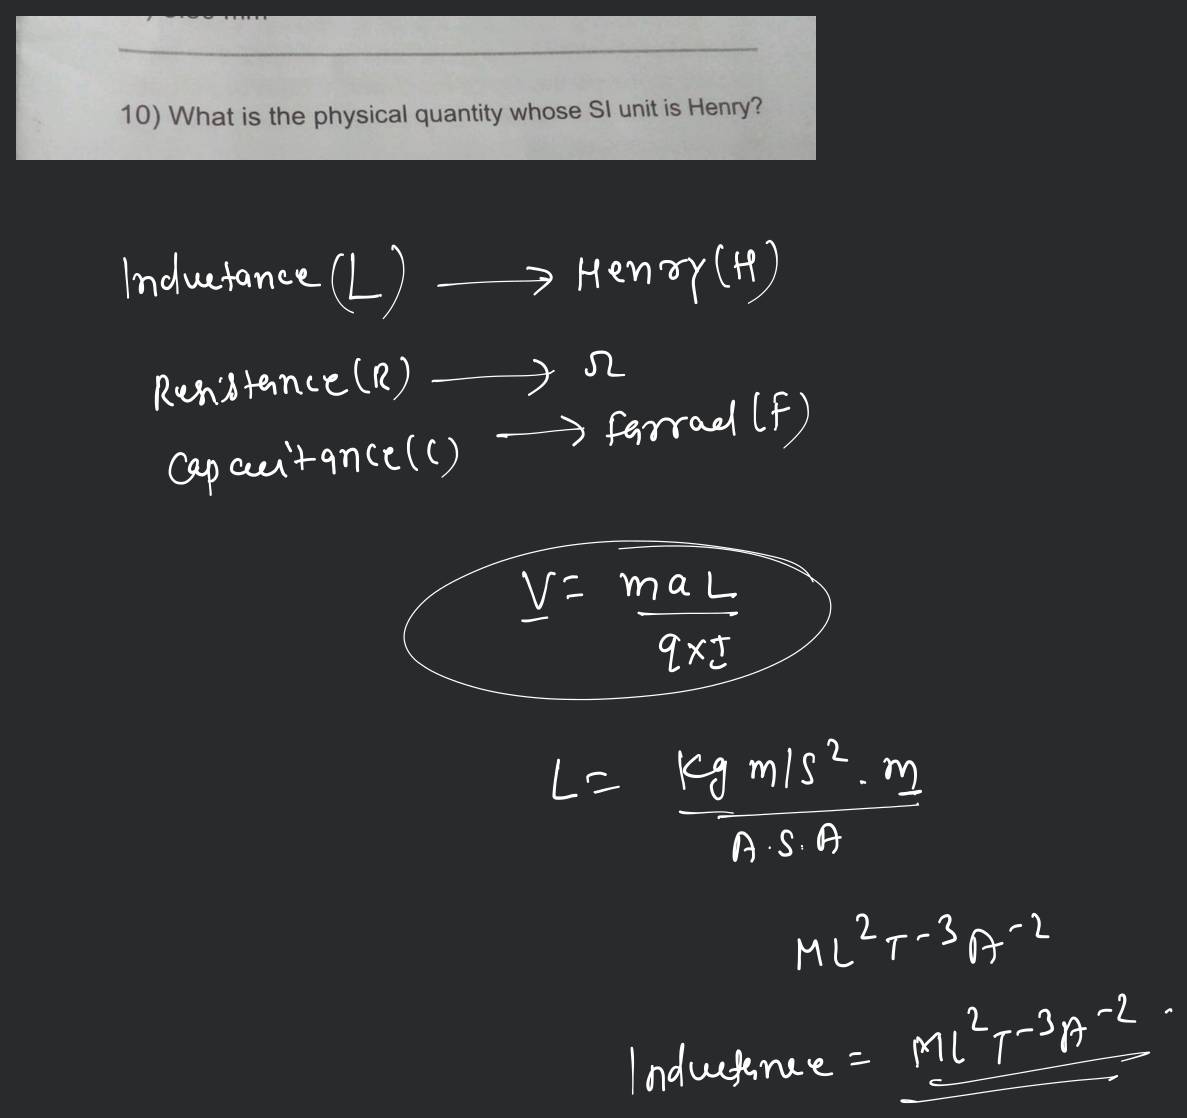 10) What is the physical quantity whose SI unit is Henry?
Inductance (L) → Henry (H)
Resistance (R) → Ω
Capacitance (C) → farrad (F)
V = maL
q×I
L = Kg m/s². m
A.S.A
ML²T-³A-²
Inductance = ML²T-³A-².